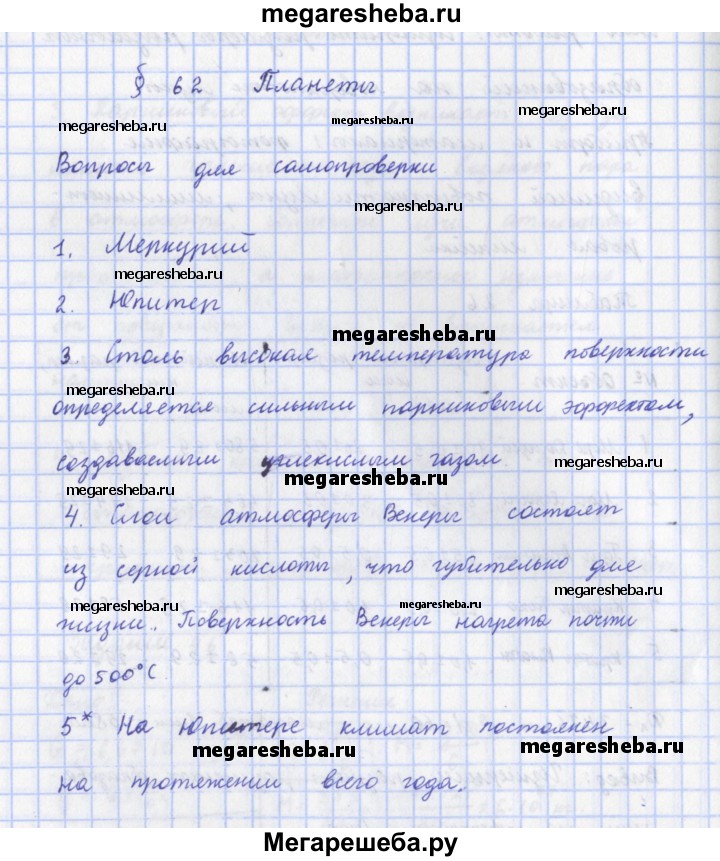 megaresheba.ru
§ 62 Планеты
megaresheba.ru megaresheba.ru megaresheba.ru
Вопросы для самопроверки
megaresheba.ru
1. Меркурий
megaresheba.ru
2. Юпитер
megaresheba.ru
3. Столь высокая температура поверхности
megaresheba.ru
определяется сильным парниковым эффектом,
создаваемым углекислым газом
megaresheba.ru megaresheba.ru
4. Слои атмосферы Венеры состоят
из серной кислоты, что губительно для
megaresheba.ru megaresheba.ru megaresheba.ru
жизни. Поверхность Венеры нагрета почти
до 500°С.
5* На Юпитере климат постоянен
megaresheba.ru megaresheba.ru
на протяжении всего года.
Мегарешеба.ру